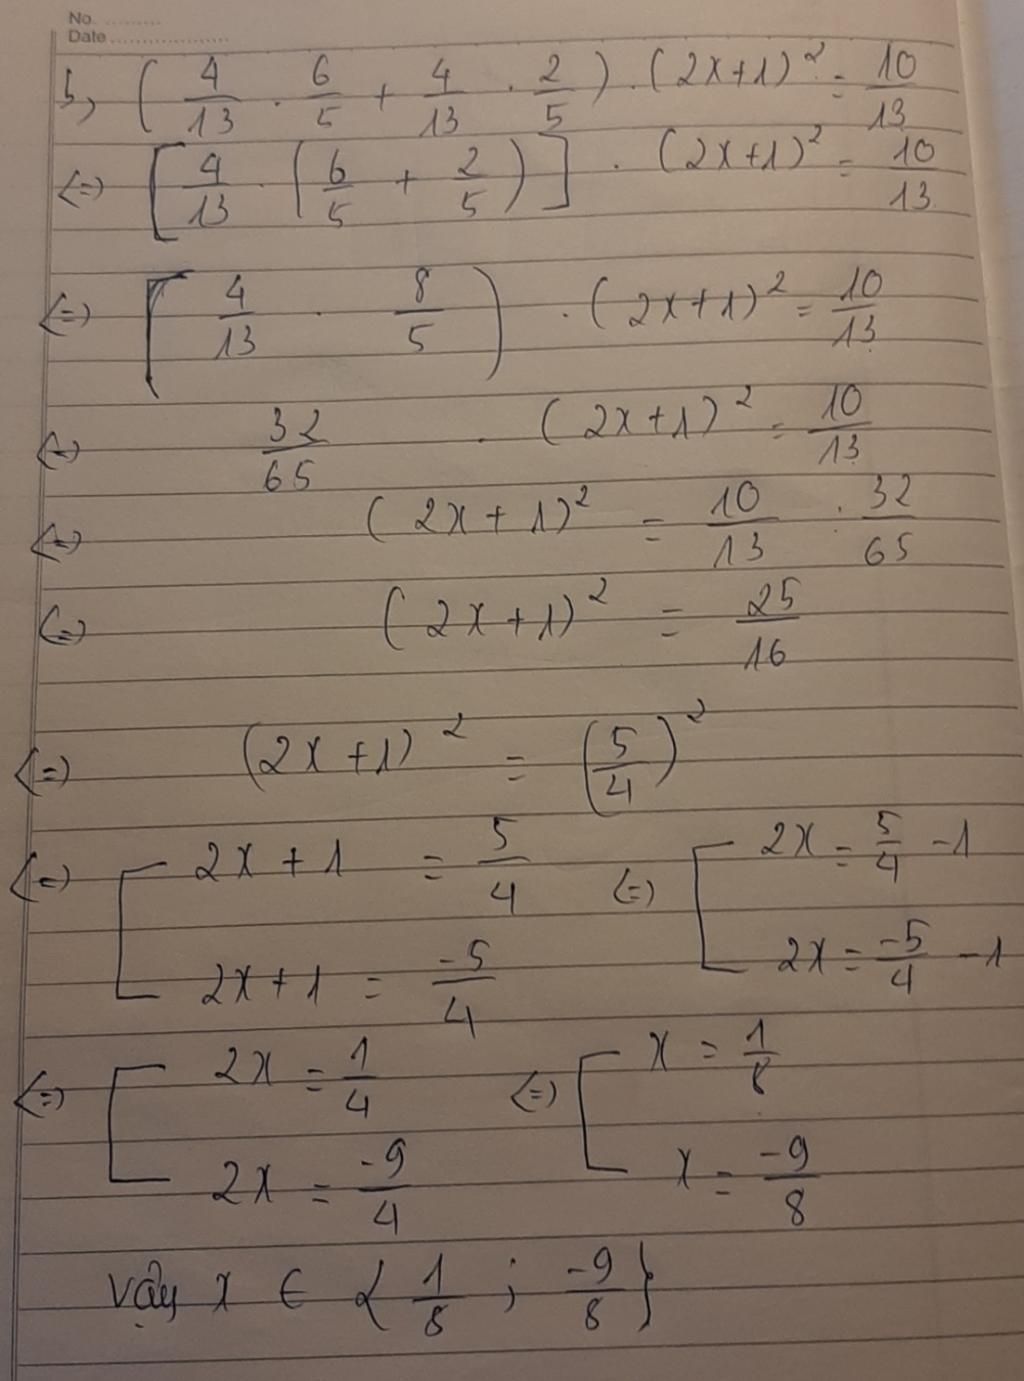 No. ...........
Date ......................
b, (4/13 . 6/5 + 4/13 . 2/5) . (2x+1)² = 10/13
<=> [4/13 . (6/5 + 2/5)] . (2x+1)² = 10/13
<=> (4/13 . 8/5) . (2x+1)² = 10/13
<=> 32/65 . (2x+1)² = 10/13
<=> (2x+1)² = 10/13 : 32/65
<=> (2x+1)² = 25/16
<=> (2x+1)² = (5/4)²
<=> [ 2x+1 = 5/4 <=> [ 2x = 5/4 - 1
2x+1 = -5/4 2x = -5/4 - 1
<=> [ 2x = 1/4 <=> [ x = 1/8
2x = -9/4 x = -9/8
Vậy x ∈ {1/8 ; -9/8}